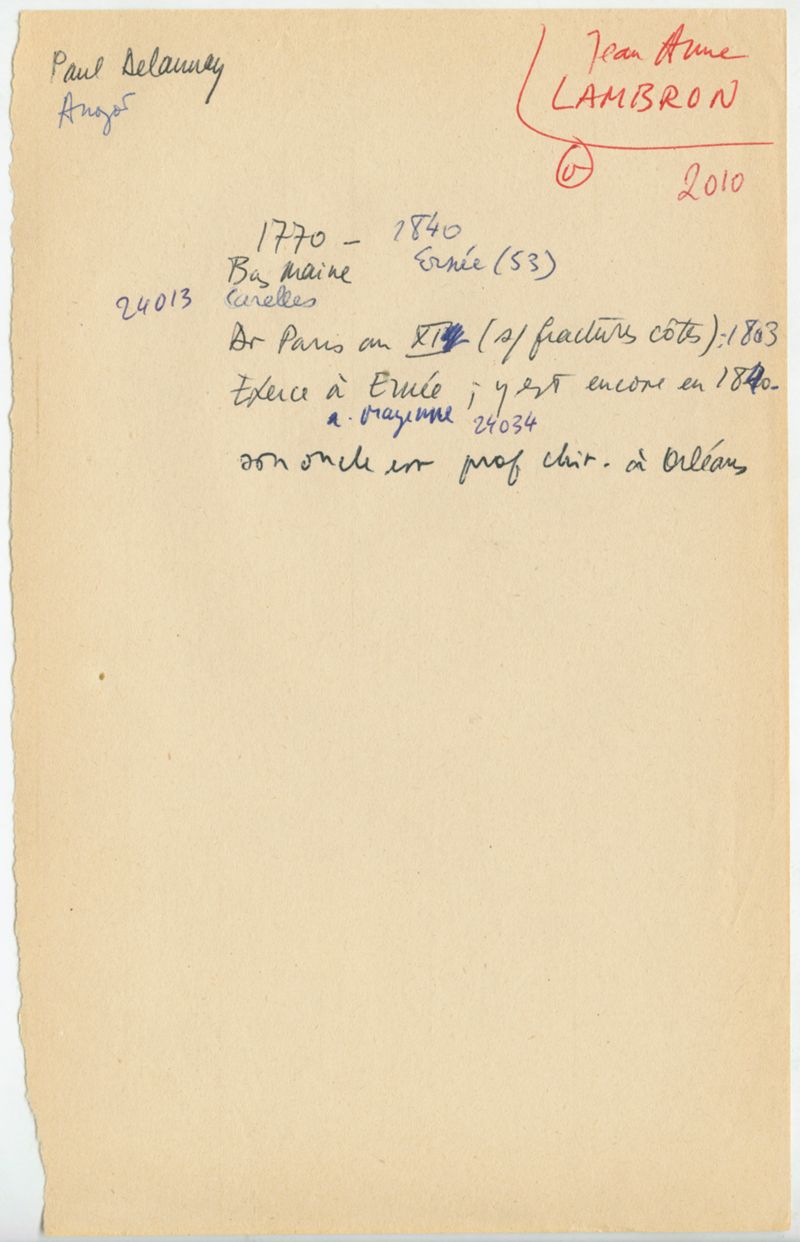 Paul Delaunay
Jean Anne
LAMBRON
v
2010
1770 - 1840
Bas Maine Ernée (53)
24013 Carelles
Dr Paris an (s/ fractures côtes) : 1803
Exerce à Ernée ; y est encore en 1840.
a. Mayenne 24034
son oncle est prof chir. à Orléans